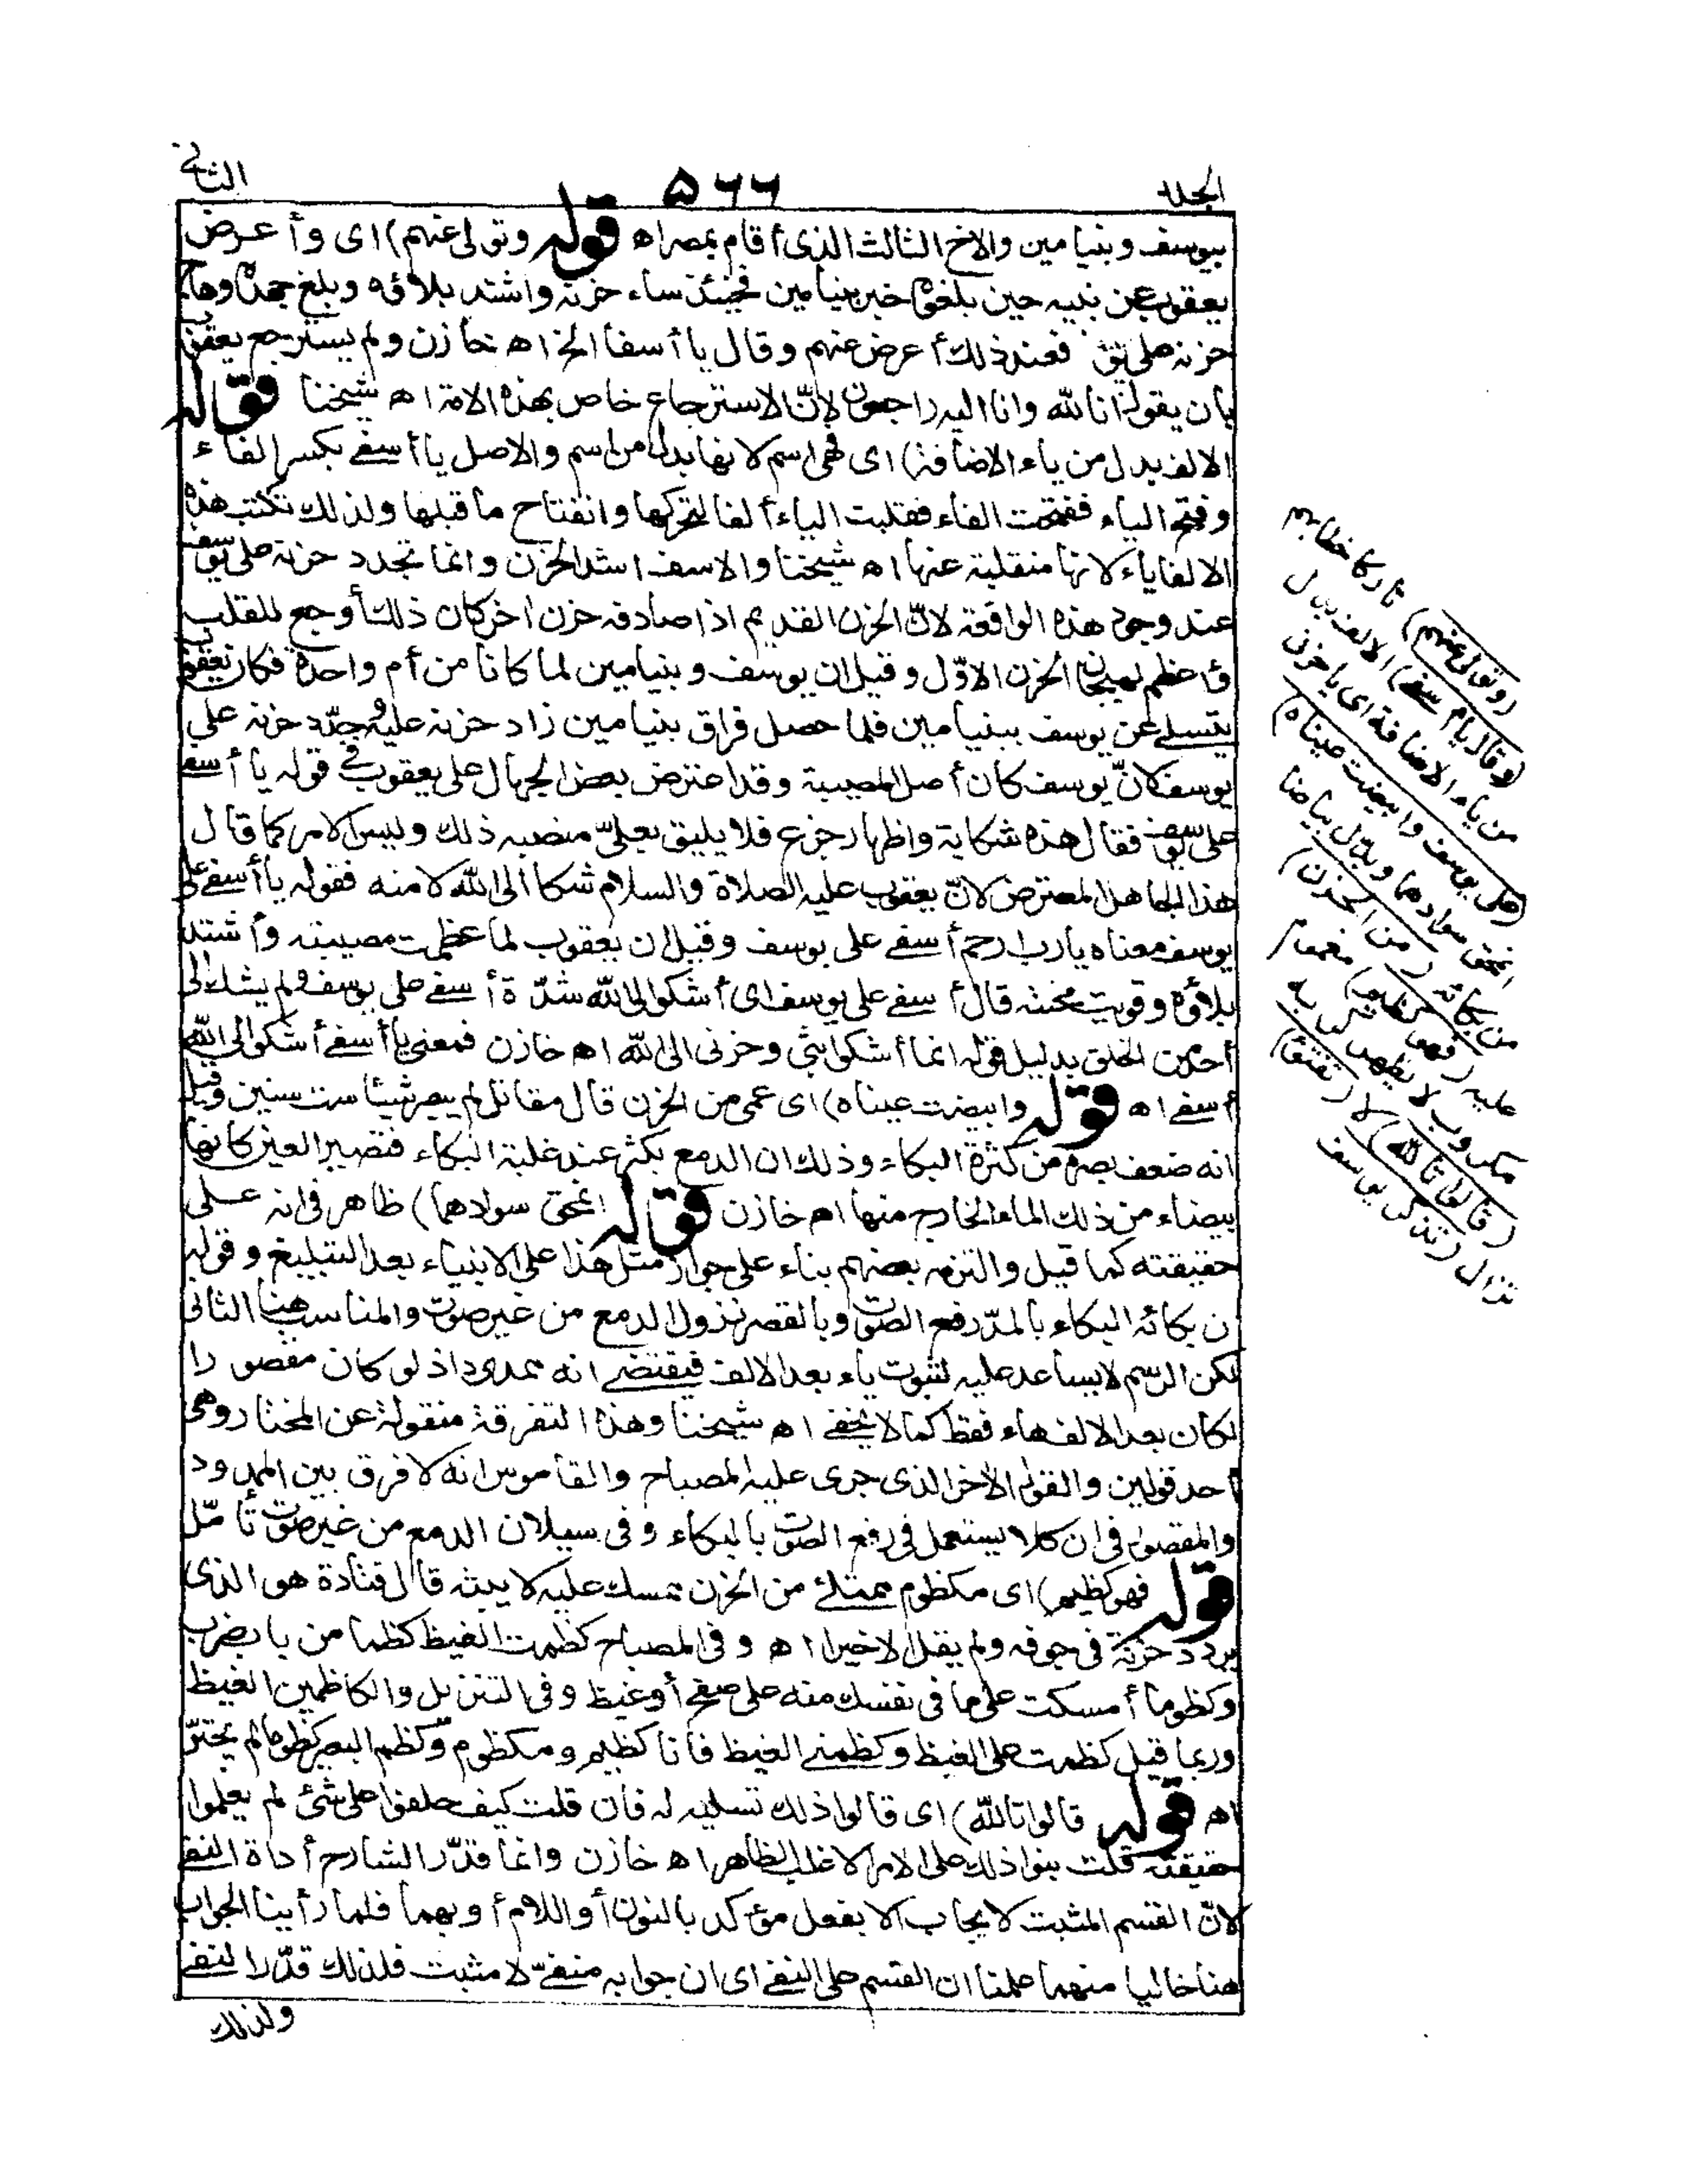 الجلد
۵۶۶
الثانى
بيوسف وبنيامين والاخ الثالث الذى أقام بمصر اه قوله وتولى عنهم) اى وأعرض
يعقوب عن بنيه حين بلغوه خبر بنيامين فحينئذ ساء حزنه واشتد بلاؤه وبلغ جهده وهاج
حزنه على يوسف فعند ذلك أعرض عنهم وقال يا أسفا الخ اه خازن ولم يسترجع يعقوب
بان يقول انا لله وانا اليه راجعون لانّ الاسترجاع خاص بهذه الامة اه شيخنا قوله
الالف بدل من ياء الاضافة) اى فهى اسم لانها بدل من اسم والاصل يا أسفى بكسر الفاء
وفتح الياء ففتحت الفاء فقلبت الياء ألفا لتحركها وانفتاح ما قبلها ولذلك تكتب هذه
الالف ياء لانها منقلبة عنها اه شيخنا والاسف اشد الحزن وانما تجدد حزنه على يوسف
عند وجود هذه الواقعة لانّ الحزن القديم اذا صادفه حزن اخر كان ذلك أوجع للقلب
وأعظم لهيجان الحزن الاوّل وقيل ان يوسف وبنيامين لما كانا من أم واحدة فكان يعقوب
يتسلى عن يوسف ببنيامين فلما حصل فراق بنيامين زاد حزنه عليه وجدّد حزنه على
يوسف لانّ يوسف كان أصل المصيبة وقد اعترض بعض الجهال على يعقوب فى قوله يا أسفى
على يوسف فقال هذه شكاية واظهار جزع فلا يليق بعلىّ منصبه ذلك وليس الامر كما قال
هذا الجاهل المعترض لانّ يعقوب عليه الصلاة والسلام شكا الى الله لا منه فقوله يا أسفى على
يوسف معناه يا رب ارحم أسفى على يوسف وقيل ان يعقوب لما عظمت مصيبته وأشتد
بلاؤه وقويت محنته قال أسفى على يوسف اى أشكو الى الله شدّة أسفى على يوسف ولم يشك الى
أحد من الخلق بدليل قوله انما أشكوا بثى وحزنى الى الله اه خازن فمعنى يا أسفى أشكو الى الله
أسفى اه قوله وابيضت عيناه) اى عمى من الحزن قال مقاتل لم يبصر شيئا ست سنين وقيل
انه ضعف بصره من كثرة البكاء وذلك ان الدمع يكثر عند غلبة البكاء فتصير العين كانها
بيضاء من ذلك الماء الخارج منها اه خازن قوله انمحق سوادهما) ظاهر فى انه على
حقيقته كما قيل والتزمه بعضهم بناء على جواز مثل هذا على الانبياء بعد التبليغ وقوله
ن بكائه البكاء بالمدّ رفع الصوت وبالقصر نزول الدمع من غير صوت والمناسب هنا الثانى
لكن الرسم لا يساعد عليه لثبوت ياء بعد الالف فيقتضى انه ممدود اذ لو كان مقصورا
لكان بعد الالف هاء فقط كما لا يخفى اه شيخنا وهذه التفرقة منقولة عن المختار وهى
احد قولين والقول الأخر الذى جرى عليه المصباح والقاموس انه لا فرق بين الممدود
والمقصور فى ان كلا يستعمل فى رفع الصوت بالبكاء وفى سيلان الدمع من غير صوت تأمّل
قوله فهو كظيم) اى مكظوم ممتلئ من الحزن ممسك عليه لا يبثه قال قتادة هو الذى
يردد حزنه فى جوفه ولم يقل الا خيرا اه وفى المصباح كظمت الغيظ كظما من باب ضرب
وكظوما أمسكت على ما فى نفسك منه على صفح أو غيظ وفى التنزيل والكاظمين الغيظ
وربما قيل كظمت على الغيظ وكظمنى الغيظ فأنا كظيم ومكظوم وكظم البعير كظوما لم يجترّ
اه قوله قالوا تالله) اى قالوا ذلك تسلية له فان قلت كيف حلفوا على شئ لم يعلموا
حقيقته قلت بنوا ذلك على الامر الاغلب الظاهر اه خازن وانما قدّر الشارح أداة النفى
لانّ القسم المثبت لا يجاب الا بفعل مؤكد بالنون أو اللام أو بهما فلما رأينا الجواب
هنا خاليا منهما علمنا ان القسم على النفى اى ان جوابه منفىّ لا مثبت فلذلك قدّر النفى
ولذلك
(وتولى عنهم) تاركا خطابهم
(وقال يا أسفى) الالف بدل
من ياء الاضافة اى يا حزنى
(على يوسف وابيضت عيناه)
انمحق سوادهما وبدّل بياضا
من بكائه (من الحزن)
عليه (فهو كظيم) مغموم
مكروب لا يظهر كربه
(قالوا تالله) لا (تفتؤا)
تزال (تذكر يوسف